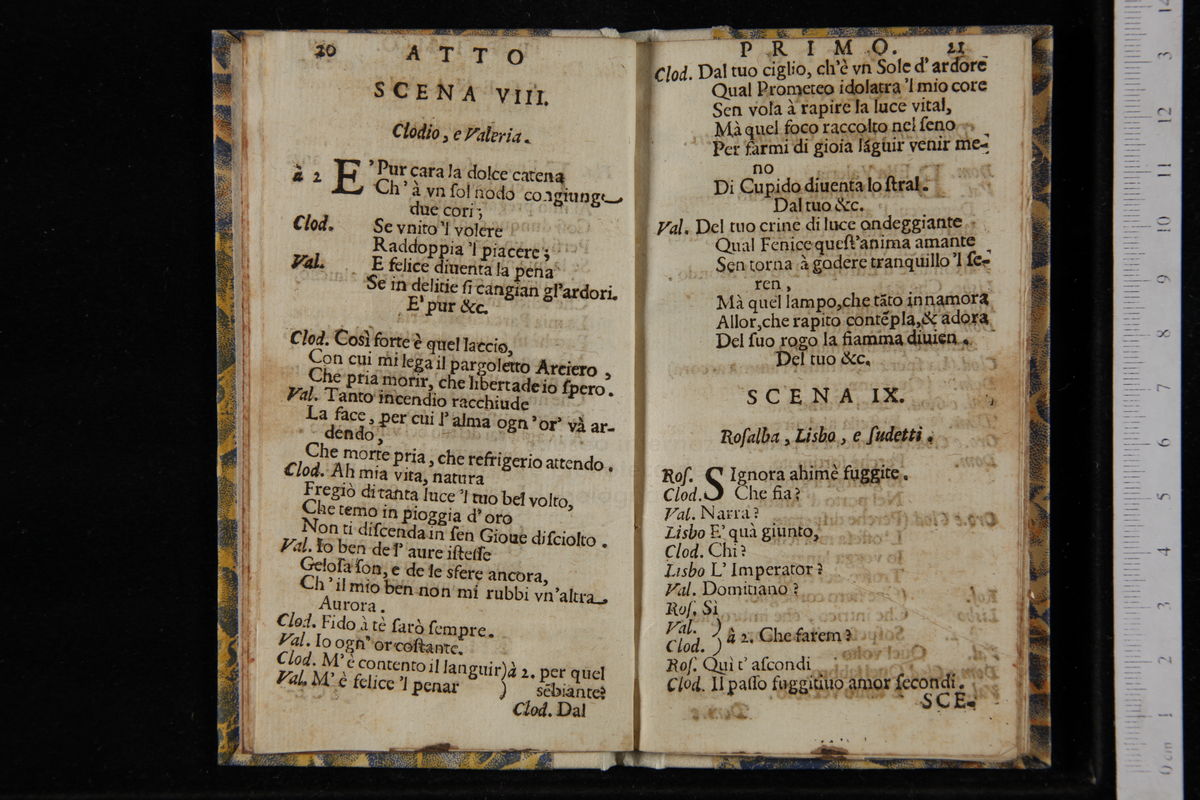 20 ATTO
SCENA VIII.
Clodio, e Valeria.
à 2 E'Pur cara la dolce catena
Ch' à vn sol nodo congiunge
due cori;
Clod. Se vnito 'l volere
Raddoppia 'l piacere;
Val. E felice diuenta la pena
Se in delitie si cangian gl'ardori.
E' pur &c.
Clod. Così forte è quel laccio,
Con cui mi lega il pargoletto Arciero,
Che pria morir, che libertade io spero.
Val. Tanto incendio racchiude
La face, per cui l'alma ogn'or' và ar-
dendo,
Che morte pria, che refrigerio attendo.
Clod. Ah mia vita, natura
Fregiò di tanta luce 'l tuo bel volto,
Che temo in pioggia d'oro
Non ti discenda in sen Gioue disciolto.
Val. Io ben de l'aure istesse
Gelosa son, e de le sfere ancora,
Ch' il mio ben non mi rubbi vn'altra
Aurora.
Clod. Fido à tè sarò sempre.
Val. Io ogn'or costante.
Clod. M'è contento il languir) à 2. per quel
Val. M'è felice 'l penar ) sẽbiante?
Clod. Dal
PRIMO. 21
Clod. Dal tuo ciglio, ch'è vn Sole d'ardore
Qual Prometeo idolatra 'l mio core
Sen vola à rapire la luce vital,
Mà quel foco raccolto nel seno
Per farmi di gioia lãguir venir me-
no
Di Cupido diuenta lo stral.
Dal tuo &c.
Val. Del tuo crine di luce ondeggiante
Qual Fenice quest'anima amante
Sen torna à godere tranquillo 'l se-
ren,
Mà quel lampo, che tãto innamora
Allor, che rapito contẽpla, & adora
Del suo rogo la fiamma diuien.
Del tuo &c.
SCENA IX.
Rosalba, Lisbo, e sudetti.
Ros. SIgnora ahimè fuggite.
Clod. Che fia?
Val. Narra?
Lisbo E' quà giunto,
Clod. Chi?
Lisbo L'Imperator?
Val. Domitiano?
Ros. Sì
Val. )
Clod. ) à 2. Che farem?
Ros. Quì t'ascondi
Clod. Il passo fuggitiuo amor secondi.
SCE-